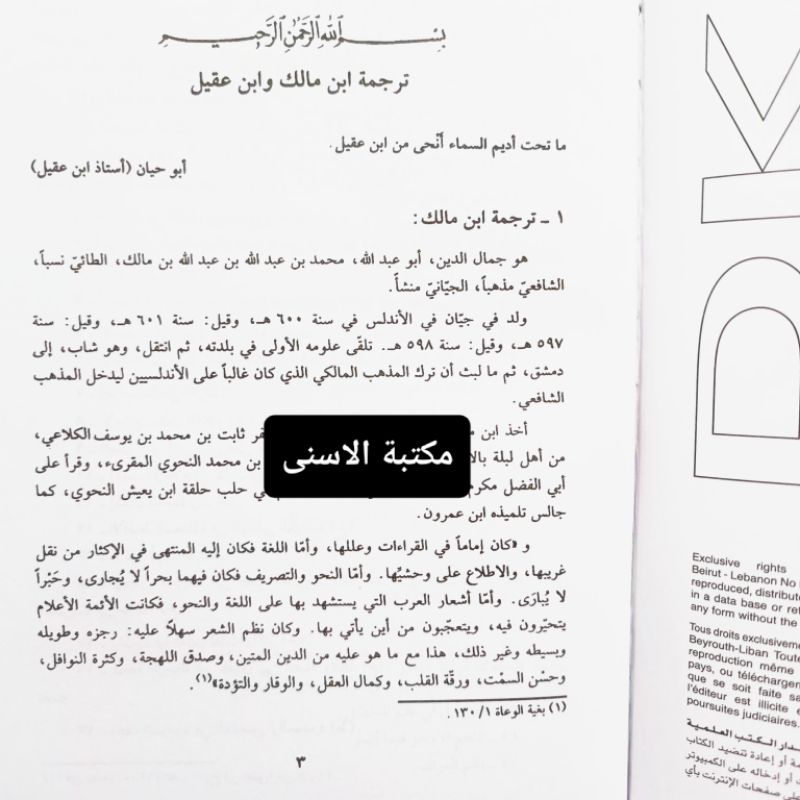 بسم الله الرحمن الرحيم
ترجمة ابن مالك وابن عقيل
ما تحت أديم السماء أَنْحى من ابن عقيل.
أبو حيان (أستاذ ابن عقيل)
١ ـ ترجمة ابن مالك:
هو جمال الدين، أبو عبد الله، محمد بن عبد الله بن عبد الله بن مالك، الطائيّ نسباً،
الشافعيّ مذهباً، الجيّانيّ منشأً.
ولد في جيّان في الأندلس في سنة ٦٠٠ هـ، وقيل: سنة ٦٠١ هـ، وقيل: سنة
٥٩٧ هـ، وقيل: سنة ٥٩٨ هـ. تلقّى علومه الأولى في بلدته، ثم انتقل، وهو شاب، إلى
دمشق، ثم ما لبث أن ترك المذهب المالكي الذي كان غالباً على الأندلسيين ليدخل المذهب
الشافعي.
أخذ ابن ثابت بن محمد بن يوسف الكلاعي،
من أهل لبلة بن محمد النحوي المقرىء، وقرأ على
أبي الفضل مكتبة الاسنى في حلب حلقة ابن يعيش النحوي، كما
جالس تلميذه ابن عمرون.
و «كان إماماً في القراءات وعللها، وأمّا اللغة فكان إليه المنتهى في الإكثار من نقل
غريبها، والاطلاع على وحشيّها. وأمّا النحو والتصريف فكان فيهما بحراً لا يُجارى، وحَبْراً
لا يُبارَى. وأمّا أشعار العرب التي يستشهد بها على اللغة والنحو، فكانت الأئمة الأعلام
يتحيّرون فيه، ويتعجّبون من أين يأتي بها. وكان نظم الشعر سهلاً عليه: رجزه وطويله
وبسيطه وغير ذلك، هذا مع ما هو عليه من الدين المتين، وصدق اللهجة، وكثرة النوافل،
وحسْن السمْت، ورقّة القلب، وكمال العقل، والوقار والتؤدة»(١).
(١) بغية الوعاة ١/ ١٣٠.
٣
Exclusive rights
Beirut - Lebanon No
reproduced, distribute
in a data base or ret
any form without the
Tous droits exclusivemen
Beyrouth-Liban Toute
reproduction même
pays, ou téléchargen
que se soit faite sa
l'éditeur est illicite e
poursuites judiciaires.
دار الكتب العلمية
أو إعادة تنضيد الكتاب
أو إدخاله على الكمبيوتر
على صفحات الإنترنت بأي